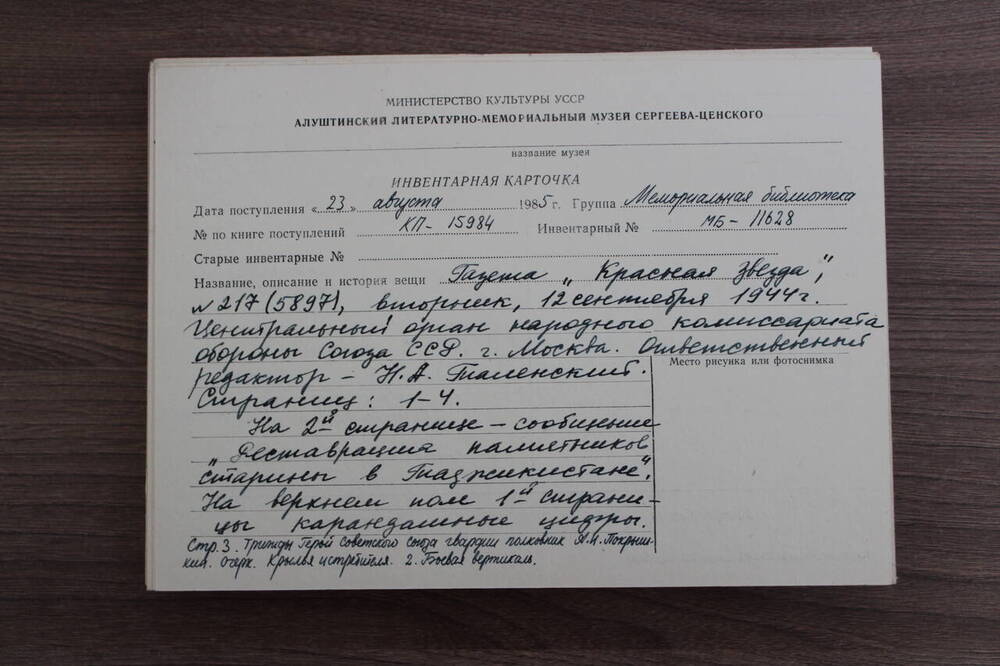 МИНИСТЕРСТВО КУЛЬТУРЫ УССР
АЛУШТИНСКИЙ ЛИТЕРАТУРНО-МЕМОРИАЛЬНЫЙ МУЗЕЙ СЕРГЕЕВА-ЦЕНСКОГО
название музея
ИНВЕНТАРНАЯ КАРТОЧКА
Дата поступления «23» августа 1985 г. Группа Мемориальная библиотека
№ по книге поступлений КП- 15984 Инвентарный № МБ- 11628
Старые инвентарные №
Название, описание и история вещи Газета „Красная Звезда",
№217 (5897), вторник, 12 сентября 1944 г.
Центральный орган народного комиссариата
обороны Союза ССР. г. Москва. Ответственный
редактор – Н.А. Таленский.
Место рисунка или фотоснимка
Страниц: 1-4.
На 2й странице – сообщение
„Реставрация памятников
старины в Таджикистане".
На верхнем поле 1й страни-
цы карандашные цифры.
Стр.3. Трижды Герой Советского Союза гвардии полковник А.И. Покрыш-
кин. Очерк. Крылья истребителя. 2. Боевая вертикаль.